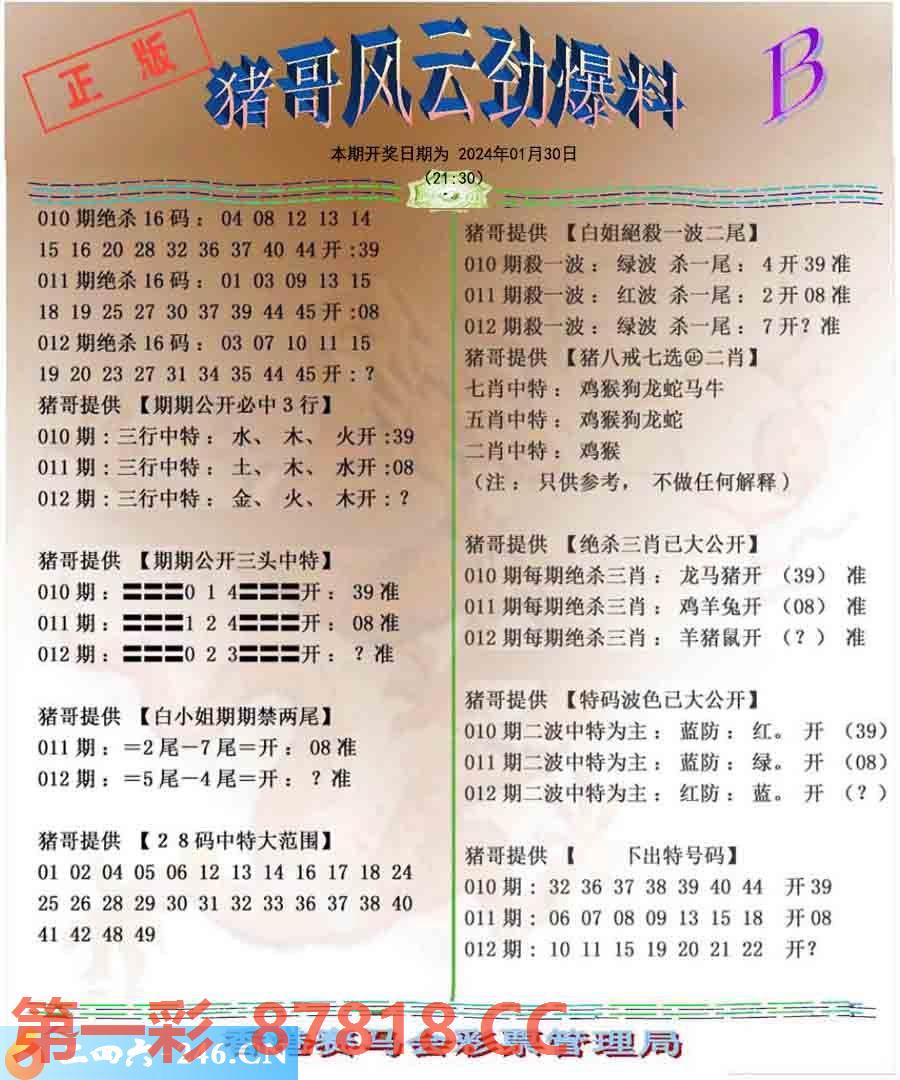 正版
猪哥风云劲爆料
B
本期开奖日期为 2024年01月30日
(21:30)
010 期绝杀 16 码： 04 08 12 13 14
15 16 20 28 32 36 37 40 44 开 :39
011 期绝杀 16 码： 01 03 09 13 15
18 19 25 27 30 37 39 44 45 开 :08
012 期绝杀 16 码： 03 07 10 11 15
19 20 23 27 31 34 35 44 45 开：?
猪哥提供 【期期公开必中 3 行】
010 期：三行中特： 水、 木、 火开 :39
011 期：三行中特： 土、 木、 水开 :08
012 期：三行中特： 金、 火、 木开：?
猪哥提供 【期期公开三头中特】
010 期：〓〓〓0 1 4〓〓〓开： 39 准
011 期：〓〓〓1 2 4〓〓〓开： 08 准
012 期：〓〓〓0 2 3〓〓〓开： ？准
猪哥提供 【白小姐期期禁两尾】
011 期：＝2 尾－7 尾＝开： 08 准
012 期：＝5 尾－4 尾＝开： ？准
猪哥提供 【２８码中特大范围】
01 02 04 05 06 12 13 14 16 17 18 24
25 26 28 29 30 31 32 33 36 37 38 40
41 42 48 49
猪哥提供 【白姐絕殺一波二尾】
010 期殺一波： 绿波 杀一尾： 4 开 39 准
011 期殺一波： 红波 杀一尾： 2 开 08 准
012 期殺一波： 绿波 杀一尾： 7 开? 准
猪哥提供 【猪八戒七选㊣二肖】
七肖中特： 鸡猴狗龙蛇马牛
五肖中特： 鸡猴狗龙蛇
二肖中特： 鸡猴
（注： 只供参考， 不做任何解释）
猪哥提供 【绝杀三肖已大公开】
010 期每期绝杀三肖： 龙马猪开 （39） 准
011 期每期绝杀三肖： 鸡羊兔开 （08） 准
012 期每期绝杀三肖： 羊猪鼠开 （？） 准
猪哥提供 【特码波色已大公开】
010 期二波中特为主： 蓝防： 红。 开 （39）
011 期二波中特为主： 蓝防： 绿。 开 （08）
012 期二波中特为主： 红防： 蓝。 开 （？）
猪哥提供 【 下出特号码】
010 期： 32 36 37 38 39 40 44 开 39
011 期： 06 07 08 09 13 15 18 开 08
012 期： 10 11 15 19 20 21 22 开?
第一彩 87818.CC
二四六 246.CN
香港赛马会彩票管理局